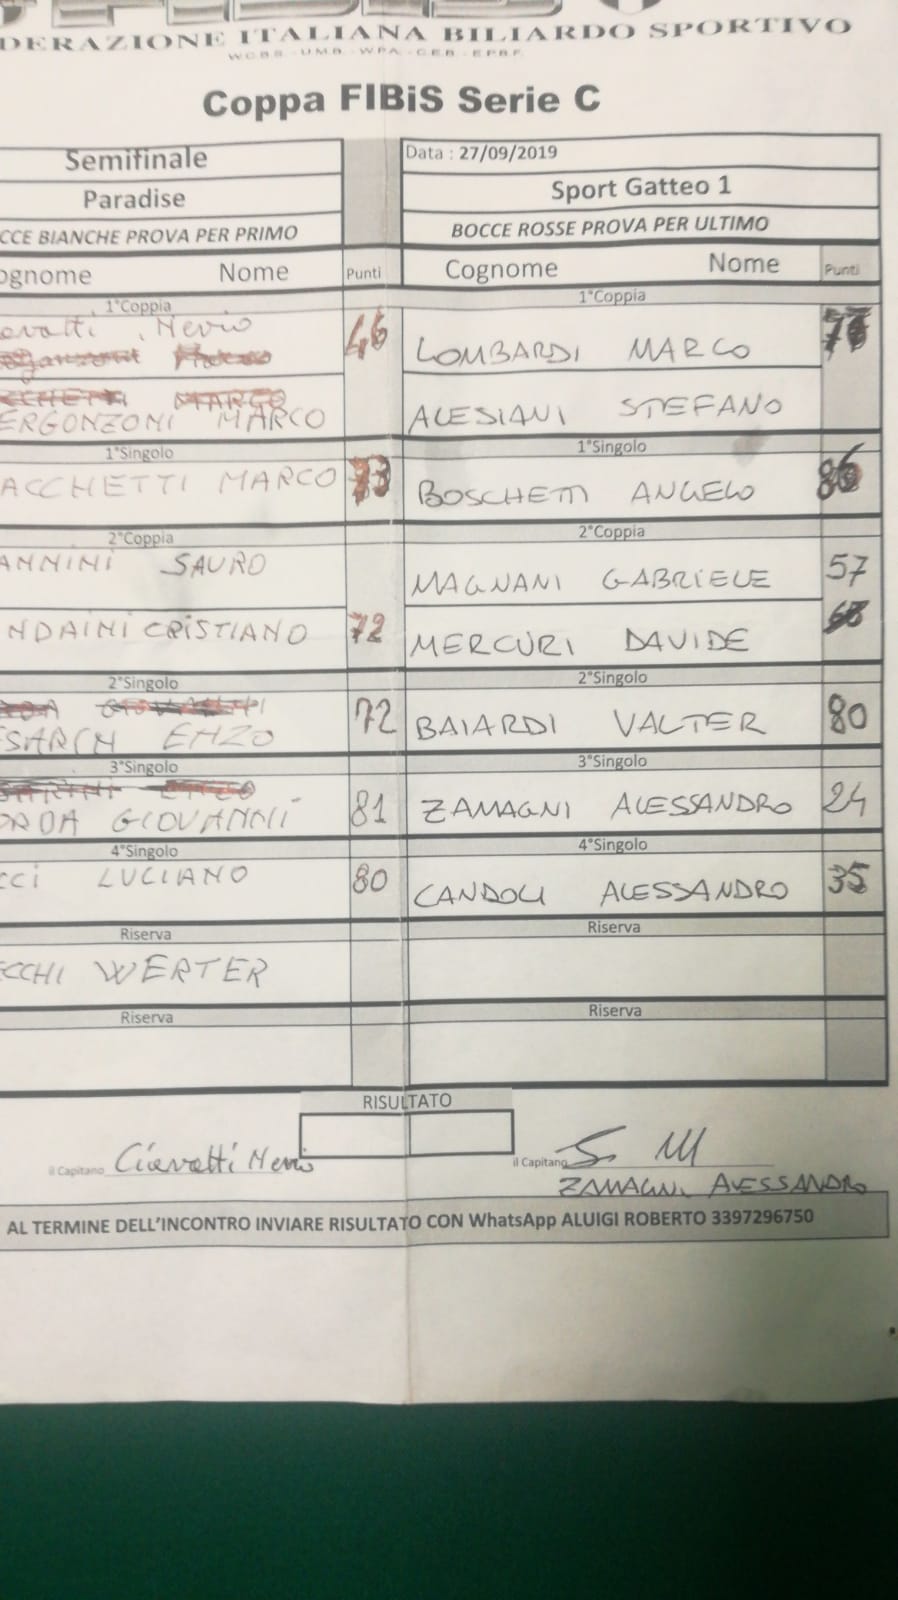 DERAZIONE ITALIANA BILIARDO SPORTIVO
W.C.B.S. - U.M.B. - W.P.A. - C.E.B. - E.P.B.F.
Coppa FIBiS Serie C
Semifinale Data : 27/09/2019
Paradise Sport Gatteo 1
CCE BIANCHE PROVA PER PRIMO BOCCE ROSSE PROVA PER ULTIMO
ognome Nome Punti Cognome Nome Punti
1°Coppia 1°Coppia
evatti Nevio 46 LOMBARDI MARCO
ERGONZONI MARCO ALESIANI STEFANO
1°Singolo 1°Singolo
ACCHETTI MARCO 73 BOSCHETTI ANGELO 86
2°Coppia 2°Coppia
ANNINI SAURO MAGNANI GABRIELE 57
NDAINI CRISTIANO 72 MERCURI DAVIDE
2°Singolo 2°Singolo
ENZO 72 BAIARDI VALTER 80
3°Singolo 3°Singolo
GIOVANNI 81 ZAMAGNI ALESSANDRO 24
4°Singolo 4°Singolo
CCI LUCIANO 80 CANDOLI ALESSANDRO 35
Riserva Riserva
CCHI WERTER
Riserva Riserva
RISULTATO
il Capitano Ciavatti Nevio il Capitano
ZAMAGNI ALESSANDRO
AL TERMINE DELL'INCONTRO INVIARE RISULTATO CON WhatsApp ALUIGI ROBERTO 3397296750